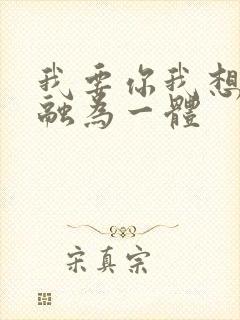 我要你我想
融為一體
宋真宗